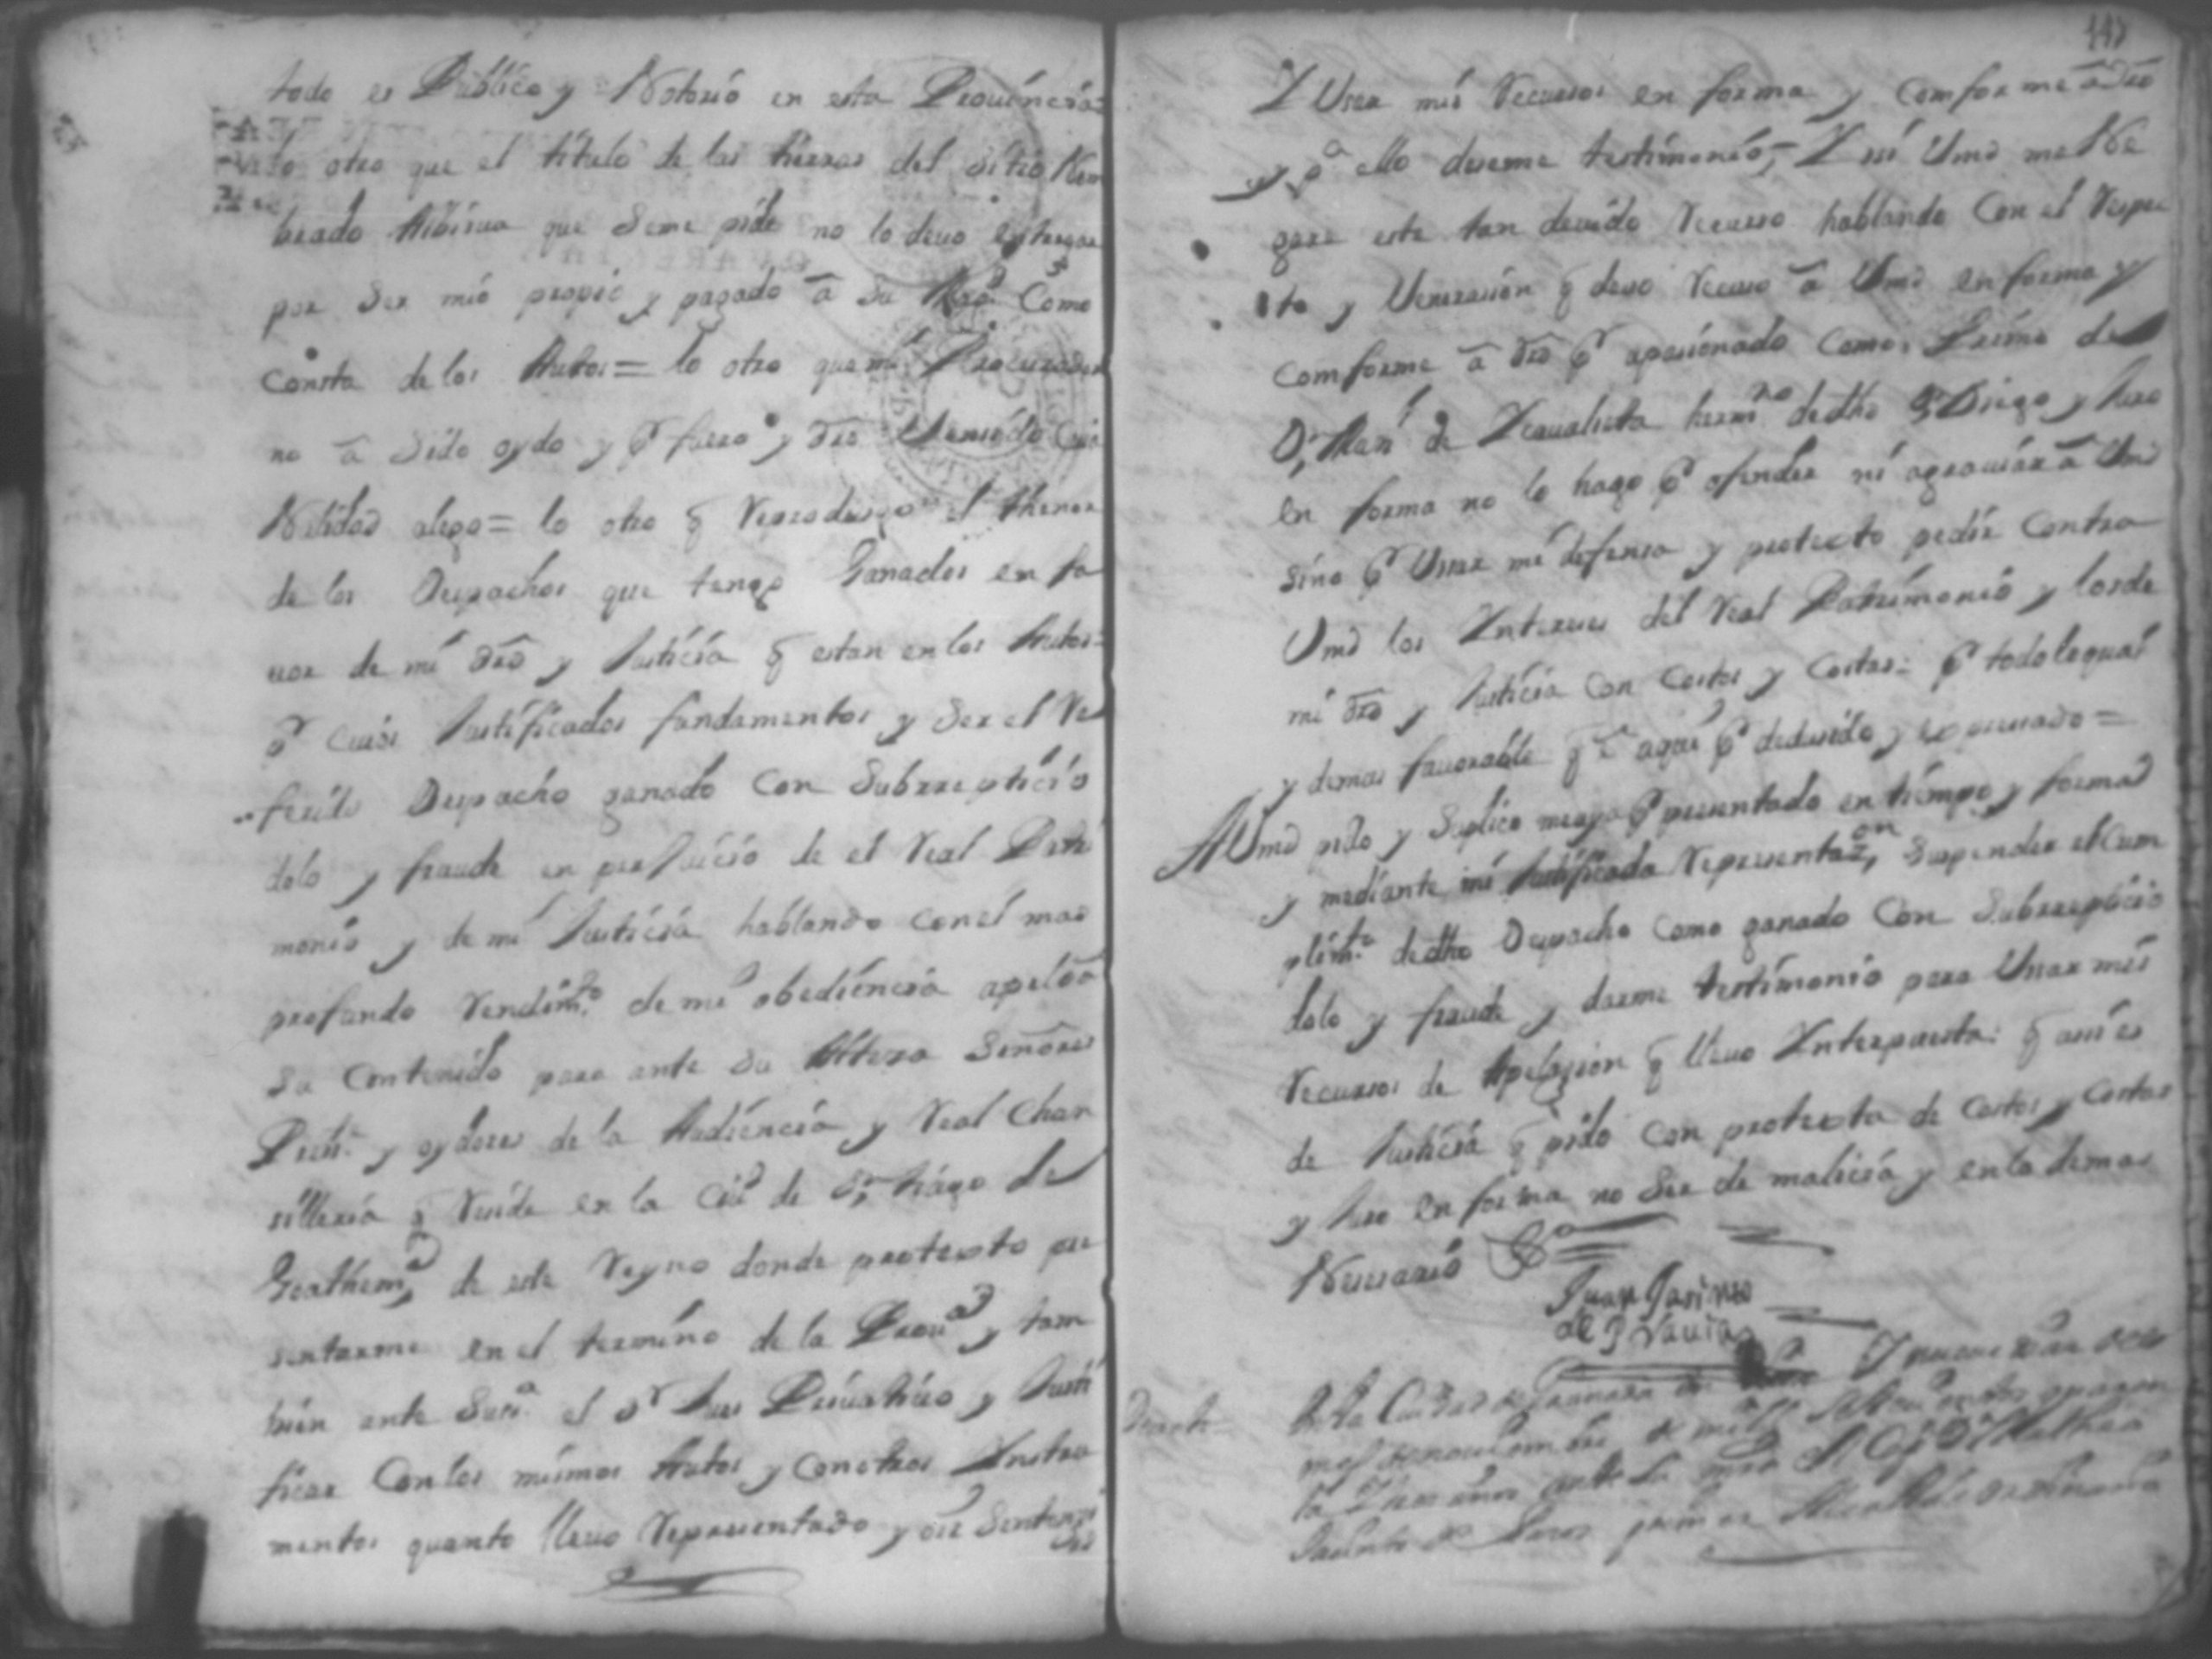 todo es Publico y Notorio en esta Prouincia=
lo otro que el titulo de las tierras del sitio Nom
brado que Seme pide no lo deuo entregar
por Ser mio propio y pagado â Su Magd Como
Consta de los Autos= lo otro que mi Procurador
no â Sido oydo y pr fuero y dro Venido Cuia
Nulidad alego= lo otro q Reproduzgo el thenor
de los Despachos que tengo Ganados en fa
uor de mi dro y Justicia q estan en los Autos=
pr Cuios Justificados fundamentos y Ser el Re
ferido Despacho ganado Con Subrreptisio
dolo y fraude en perjuicio de el Real Patri
monio y de mi Justicia hablando con el mas
profundo Rendimto de mi obediencia apelo â
Su Contenido para ante Su Alteza Señores
Preste y oydores de la Audiencia y Real Chan
silleria q Reside en la Ciud de Sntiago de
Goathema de este Reyno donde protexto pre
sentarme en el termino de la Prouea y tam
bien ante Suria el sr Jues Priuatiuo y Justi
ficar Con los mismos Autos y Con otros Instru
mentos quanto lleuo Representado y oir Sentenzi
as
Y Usar mis Recursos en forma y Comforme â dro
y pa ello deseme testimonio,= Y si Umd me Ne
gare este tan deuido Recurso hablando Con el Respe
cto y Ueneracion q deuo Recuso â Umd en forma y
Comforme â dro pr apacionado Como Primo de
Dn Man de Zeaualleta hermno dedho Dn Diego y Juro
en forma no lo hago pr ofender ni agrauiar â Umd
Sino pr Usar mi defensa y protexto pedir Contra
Umd los Intereses del Real Patrimonio y los de
mi dro y Justicia Con Costos y Costas= pr todo lo qual
y demas fauorable q ê aqui pr deducido y expresado=
A Umd pido y Suplico meaya pr presentado en tiempo y forma
y mediante mi Justificada Representazon, Suspender el Cum
plimto dedho Despacho Como ganado Con Subrrepticio
dolo y fraude y darme testimonio para Usar mis
Recursos de Apelazion q lleuo Interpuesta: q asi es
de Justicia q pido Con protexta de Costos y Costas
y Juro en forma no Ser de malicia y en lo demas
Nesesario
Juan
de
En la Ciudad de Granada en nueue dias del
mes de nouiembre de mill setecientos quaren
ta y años ante Su mrd el Cap Dn
primer Alcalde ordinario